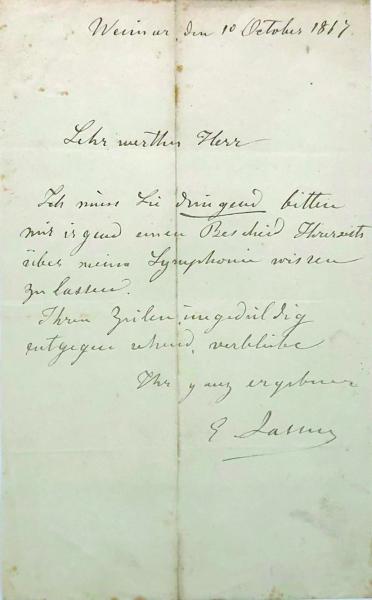 Weimar, den 10 October 1867.
Sehr werther Herr
Ich muss Sie dringend bitten
mir irgend einen Bescheid Ihrerseits
über meine Symphonie wissen
zu lassen.
Ihren Zeilen ungeduldig
entgegen sehend, verbleibe
Ihr ganz ergebener
E Lassen